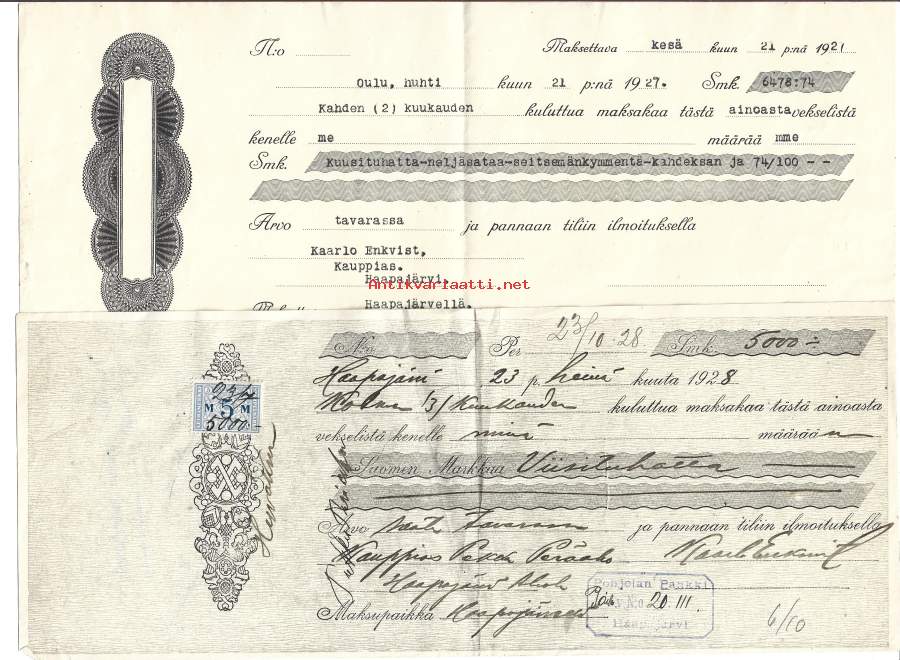 N:o Maksettava kesä kuun 21 p:nä 1921
Oulu, huhti kuun 21 p:nä 1927. Smk. 6478:74
Kahden (2) kuukauden kuluttua maksakaa tästä ainoasta vekselistä
kenelle me määrää mme
Smk. Kuusituhatta-neljäsataa-seitsemänkymmentä-kahdeksan ja 74/100 - -
Arvo tavarassa ja pannaan tiliin ilmoituksella
Kaarlo Enkvist,
Kauppias.
Haapajärvi.
Antikvariaatti.net
Haapajärvellä.
N:o Per 23/10-28 Smk. 5000 :-
Haapajärvi 23 p. heinä kuuta 1928
Kolmen /3/ kuukauden kuluttua maksakaa tästä ainoasta
vekselistä kenelle minä määrään
Suomen Markkaa Viisituhatta
Arvo tavarassa ja pannaan tiliin ilmoituksella
Kauppias Kaarlo Enkvist
Haapajärvi
Maksupaikka Haapajärvellä
23/7
M 5 M
5000:-
Pohjolan Pankki
20 III.
Haapajärvi
6/10